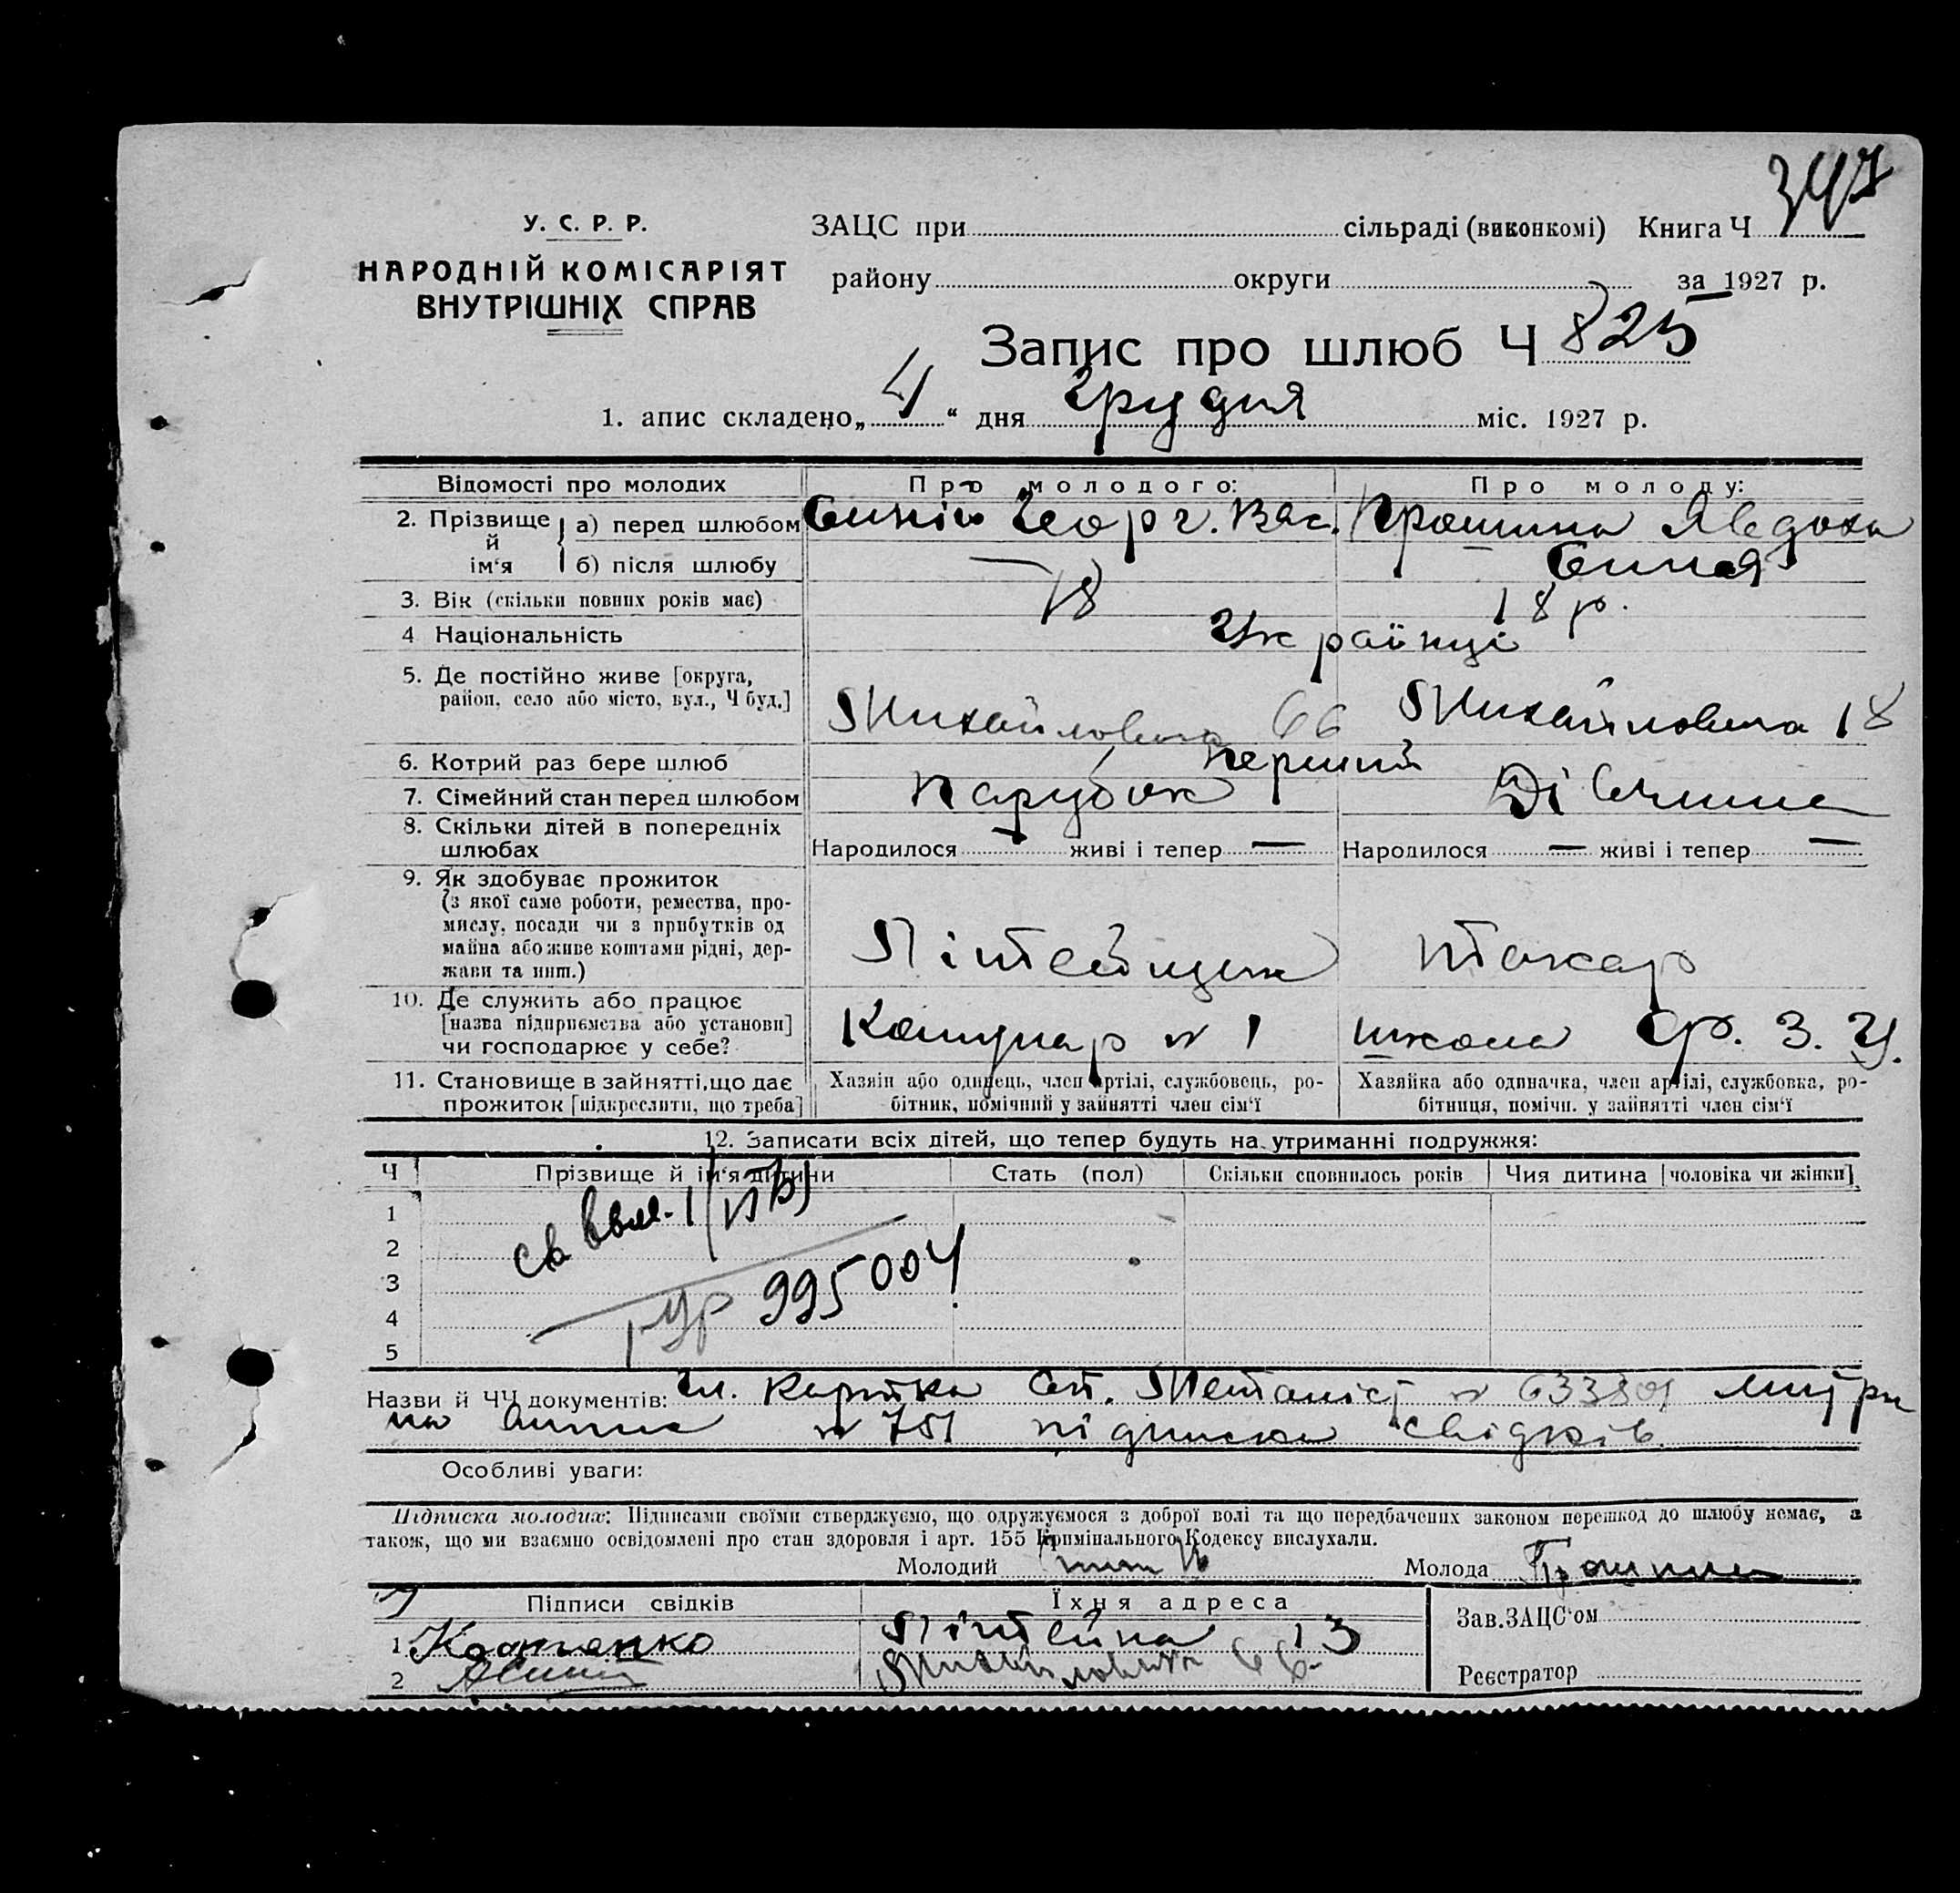 347
У. С. Р. Р.
НАРОДНІЙ КОМІСАРІЯТ
ВНУТРІШНІХ СПРАВ
ЗАЦС при сільраді (виконкомі) Книга Ч
району округи за 1927 р.
Запис про шлюб Ч 825
1. апис складено „4“ дня Грудня міс. 1927 р.
Відомості про молодих Про молодого: Про молоду:
2. Прізвище й ім‘я а) перед шлюбом Синій Георг. Вас. Прошина Явдоха
б) після шлюбу — Синяя
3. Вік (скільки повних років має) 18 18 р.
4 Національність Українці
5. Де постійно живе [округа,
район, село або місто, вул., Ч буд.] Михайловича 66 Михайловича 18
6. Котрий раз бере шлюб Перший
7. Сімейний стан перед шлюбом Парубок Дівчина
8. Скільки дітей в попередніх
шлюбах Народилося — живі і тепер — Народилося — живі і тепер —
9. Як здобуває прожиток
(з якої саме роботи, ремества, про-
мислу, посади чи з прибутків од
майна або живе коштами рідні, дер-
жави та инш.) Літейщик Токар
10. Де служить або працює
[назва підприємства або установи]
чи господарює у себе? Комунар № 1 школа Ф. З. У.
11. Становище в зайнятті, що дає
прожиток [підкреслити, що треба]
Хазяїн або одинець, член артілі, службовець, ро-
бітник, помічний у зайнятті член сім‘ї
Хазяйка або одиначка, член артілі, службовка, ро-
бітниця, помічн. у зайнятті член сім‘ї
12. Записати всіх дітей, що тепер будуть на утриманні подружжя:
Ч Прізвище й ім‘я дитини Стать (пол) Скільки сповнилось років Чия дитина [чоловіка чи жінки]
1
2
3
4
5
995004
Назви й ЧЧ документів: Чл. картка Сп. Металіст №
на № 751 підписка свідків
Особливі уваги:
Підписка молодих: Підписами своїми стверджуємо, що одружуємося з доброї волі та що передбачених законом перешкод до шлюбу немає, а
також, що ми взаємно освідомлені про стан здоровля і арт. 155 Кримінального Кодексу вислухали.
Молодий Молода Прошина
Підписи свідків Їхня адреса
1 Літейна 13
2 Михайловича 66
Зав. ЗАЦС‘ом
Реєстратор